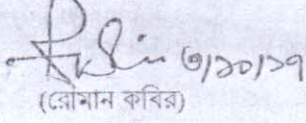 ৩/১০/১৭
(রোমান কবির)